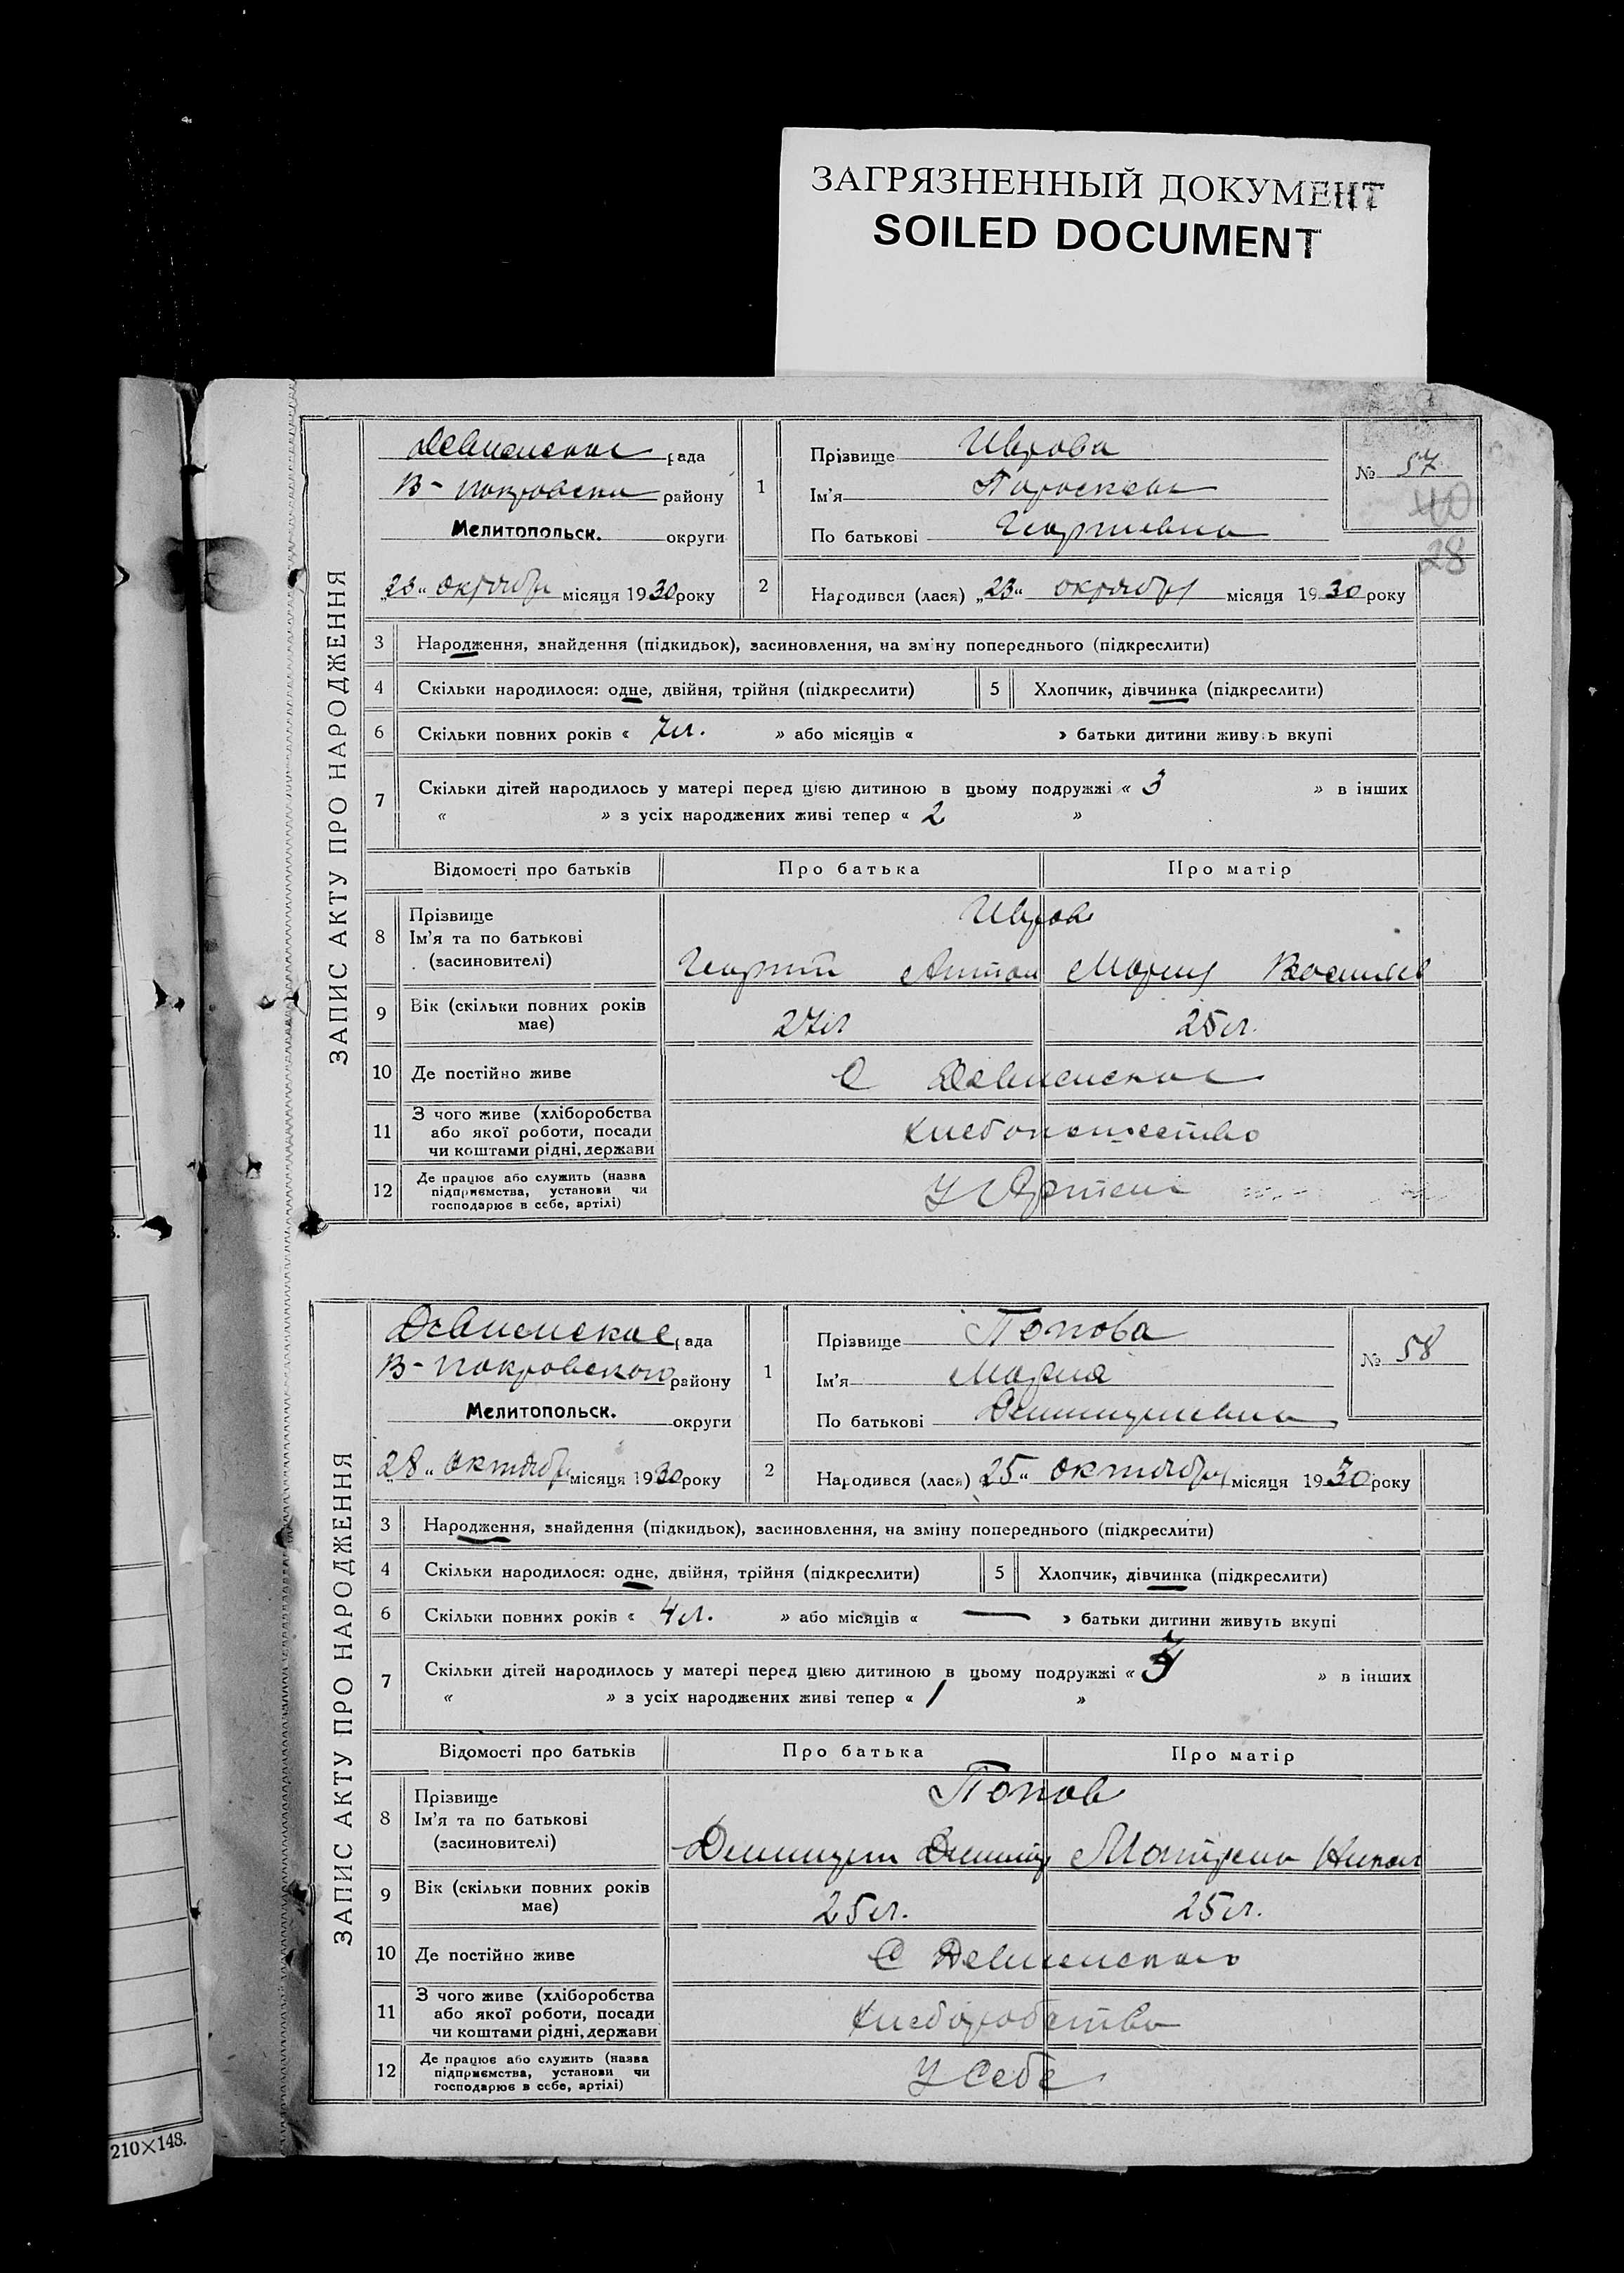 ЗАГРЯЗНЕННЫЙ ДОКУМЕНТ
SOILED DOCUMENT
ЗАПИС АКТУ ПРО НАРОДЖЕННЯ
рада
В- покровски району
Мелитопольск. округи
„23“ октябр місяця 1930 року
1
Прізвище
Ім'я Параскева
По батькові Георгиевна
№ 57
40
28
2 Народився (лася) „23“ октября місяця 1930 року
3 Народження, знайдення (підкидьок), засиновлення, на зміну попереднього (підкреслити)
4 Скільки народилося: одне, двійня, трійня (підкреслити) 5 Хлопчик, дівчинка (підкреслити)
6 Скільки повних років « 7 л. » або місяців « » батьки дитини живуть вкупі
7 Скільки дітей народилось у матері перед цією дитиною в цьому подружжі « 3 » в інших
« » з усіх народжених живі тепер « 2 »
Відомості про батьків Про батька Про матір
8 Прізвище
Ім'я та по батькові
(засиновителі)
Георгий Антон Мария Васильев
9 Вік (скільки повних років має) 27 л 25 л.
10 Де постійно живе С
11 З чого живе (хліборобства
або якої роботи, посади
чи коштами рідні, держави
12 Де працює або служить (назва
підприємства, установи чи
господарює в себе, артілі)
У Артели
ЗАПИС АКТУ ПРО НАРОДЖЕННЯ
рада
В- покровского району
Мелитопольск. округи
„28“ октябр місяця 1930 року
1
Прізвище Попова
Ім'я Мария
По батькові Димитриевна
№ 58
2 Народився (лася) „25“ октября місяця 1930 року
3 Народження, знайдення (підкидьок), засиновлення, на зміну попереднього (підкреслити)
4 Скільки народилося: одне, двійня, трійня (підкреслити) 5 Хлопчик, дівчинка (підкреслити)
6 Скільки повних років « 4 л. » або місяців « — » батьки дитини живуть вкупі
7 Скільки дітей народилось у матері перед цією дитиною в цьому подружжі « » в інших
« » з усіх народжених живі тепер « 1 »
Відомості про батьків Про батька Про матір
8 Прізвище
Ім'я та по батькові
(засиновителі)
Попов
Димитрий Димитр Матрена
9 Вік (скільки повних років має) 25 л. 25 л.
10 Де постійно живе С
11 З чого живе (хліборобства
або якої роботи, посади
чи коштами рідні, держави
Хлеборобство
12 Де працює або служить (назва
підприємства, установи чи
господарює в себе, артілі)
У Себе
210×148.